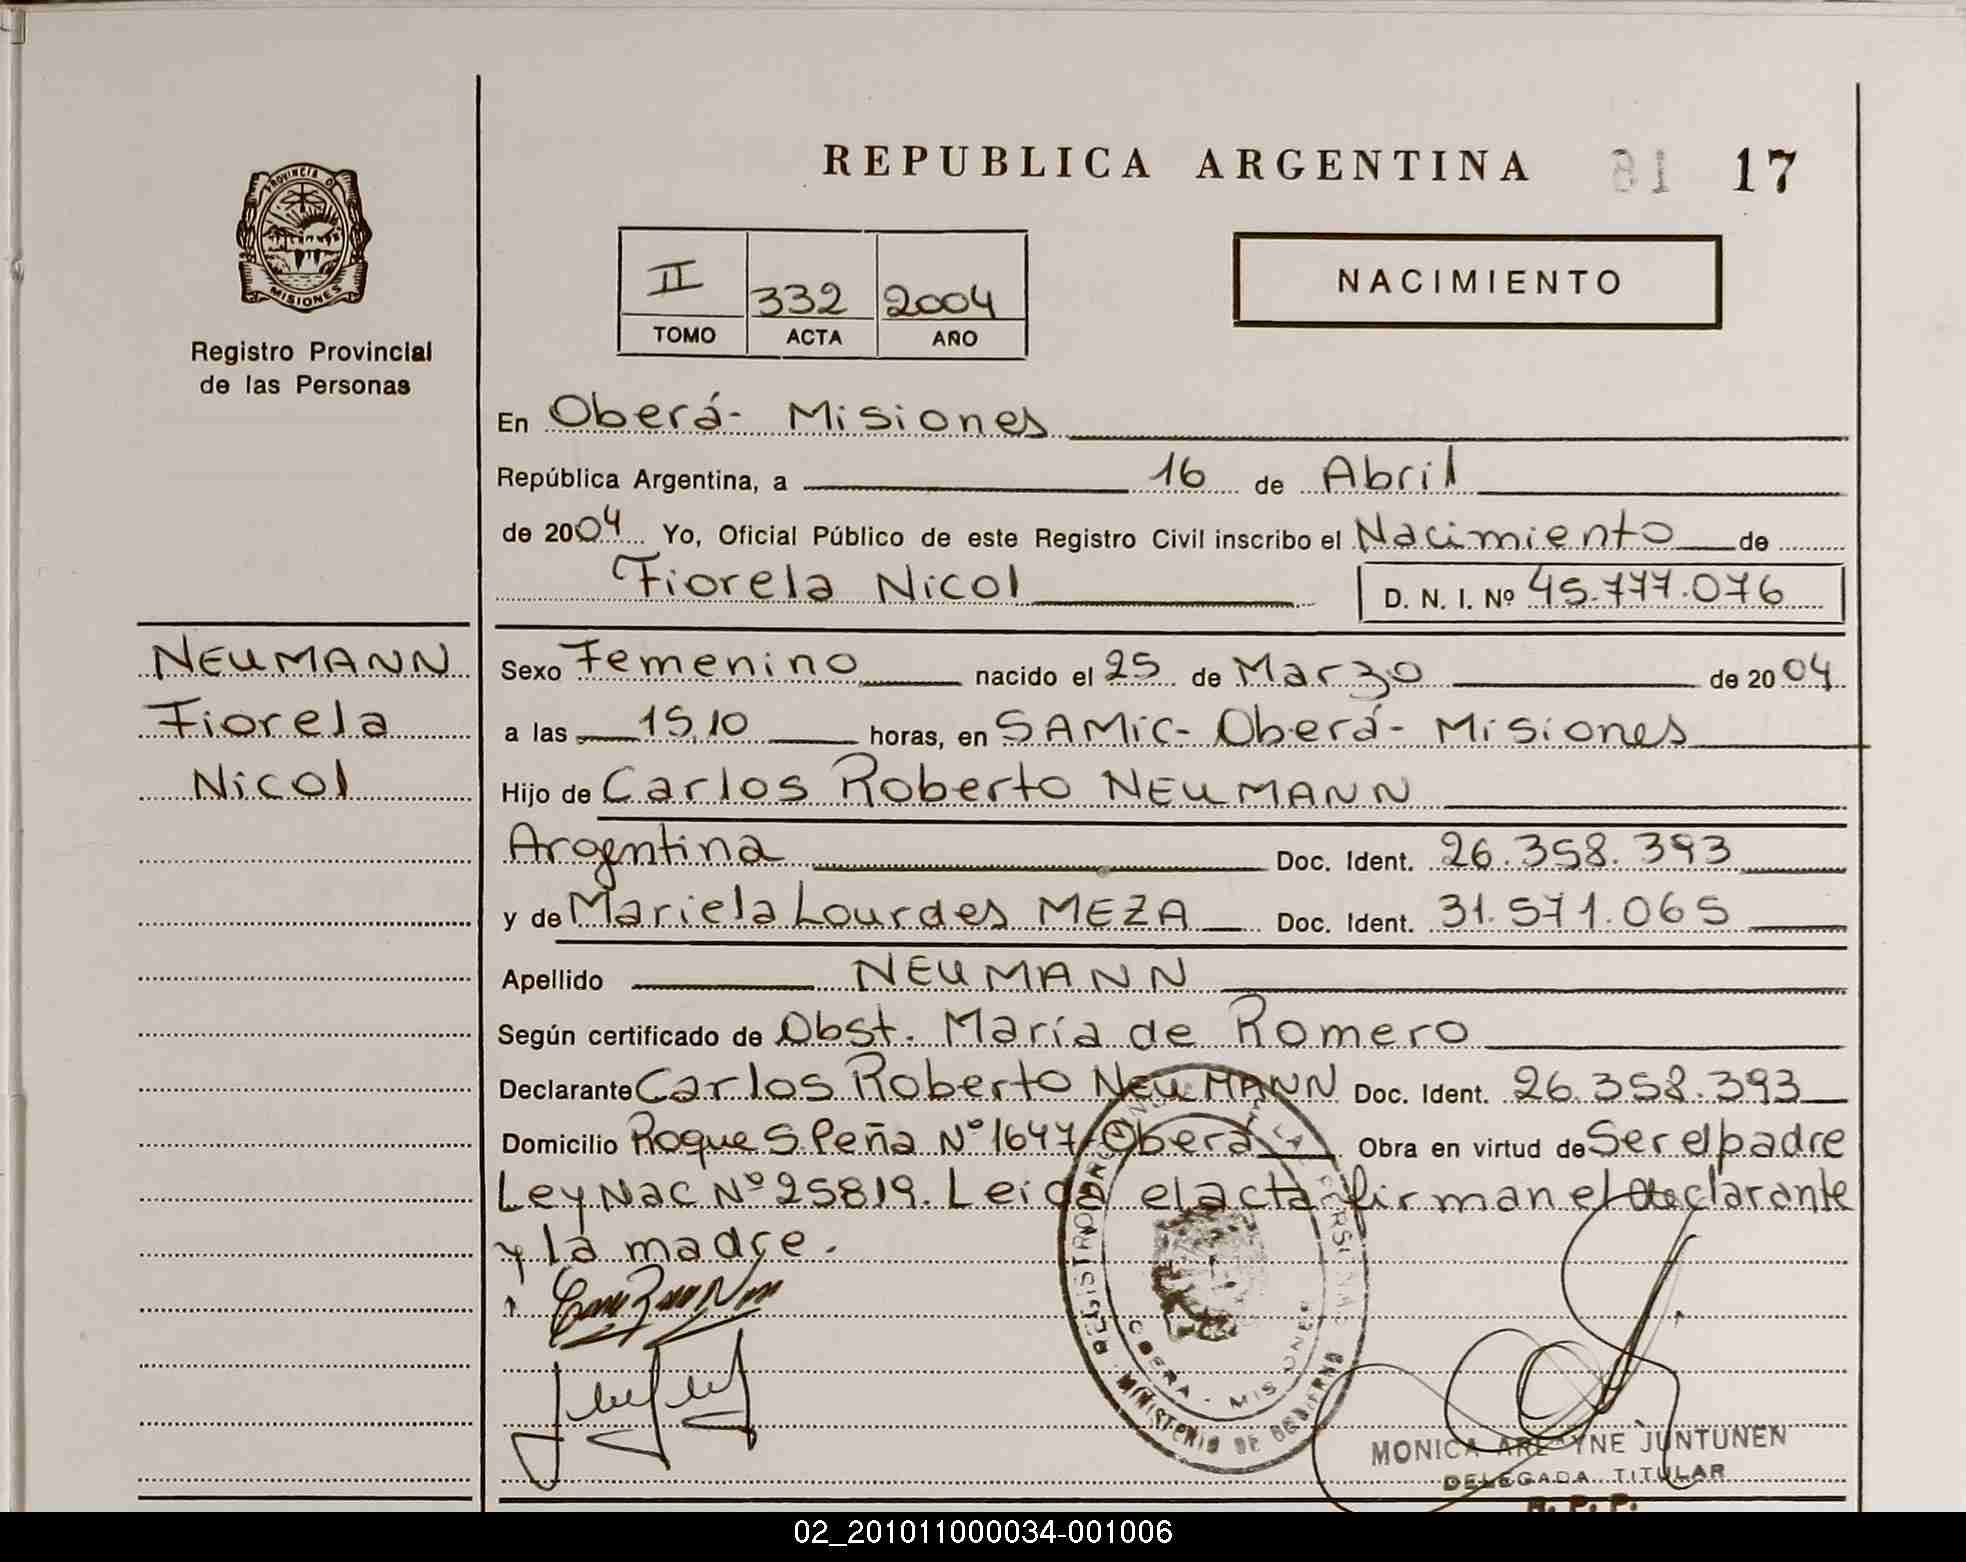 REPUBLICA ARGENTINA 81 17
PROVINCIA DE
MISIONES
Registro Provincial
de las Personas
II 332 2004
TOMO ACTA AÑO
NACIMIENTO
En Oberá- Misiones
República Argentina, a 16 de Abril
de 2004 Yo, Oficial Público de este Registro Civil inscribo el Nacimiento de
Fiorela Nicol D. N. I. Nº 45.777.076
NEUMANN
Fiorela
Nicol
Sexo Femenino nacido el 25 de Marzo de 2004
a las 15,10 horas, en SAMIC- Oberá- Misiones
Hijo de Carlos Roberto NEUMANN
Argentina Doc. Ident. 26.358.393
y de Mariela Lourdes MEZA Doc. Ident. 31.571.065
Apellido NEUMANN
Según certificado de Obst. María de Romero
Declarante Carlos Roberto NEUMANN Doc. Ident. 26.358.393
Domicilio Roque S. Peña Nº 1647-Oberá Obra en virtud de Ser el padre
Ley Nac Nº 25819. Leida el acta firman el declarante
y la madre.
OBERA - MISIONES
MINISTERIO DE GOBIERNO
MONICA JUNTUNEN
DELEGADA TITULAR
R. P. P.
02_201011000034-001006